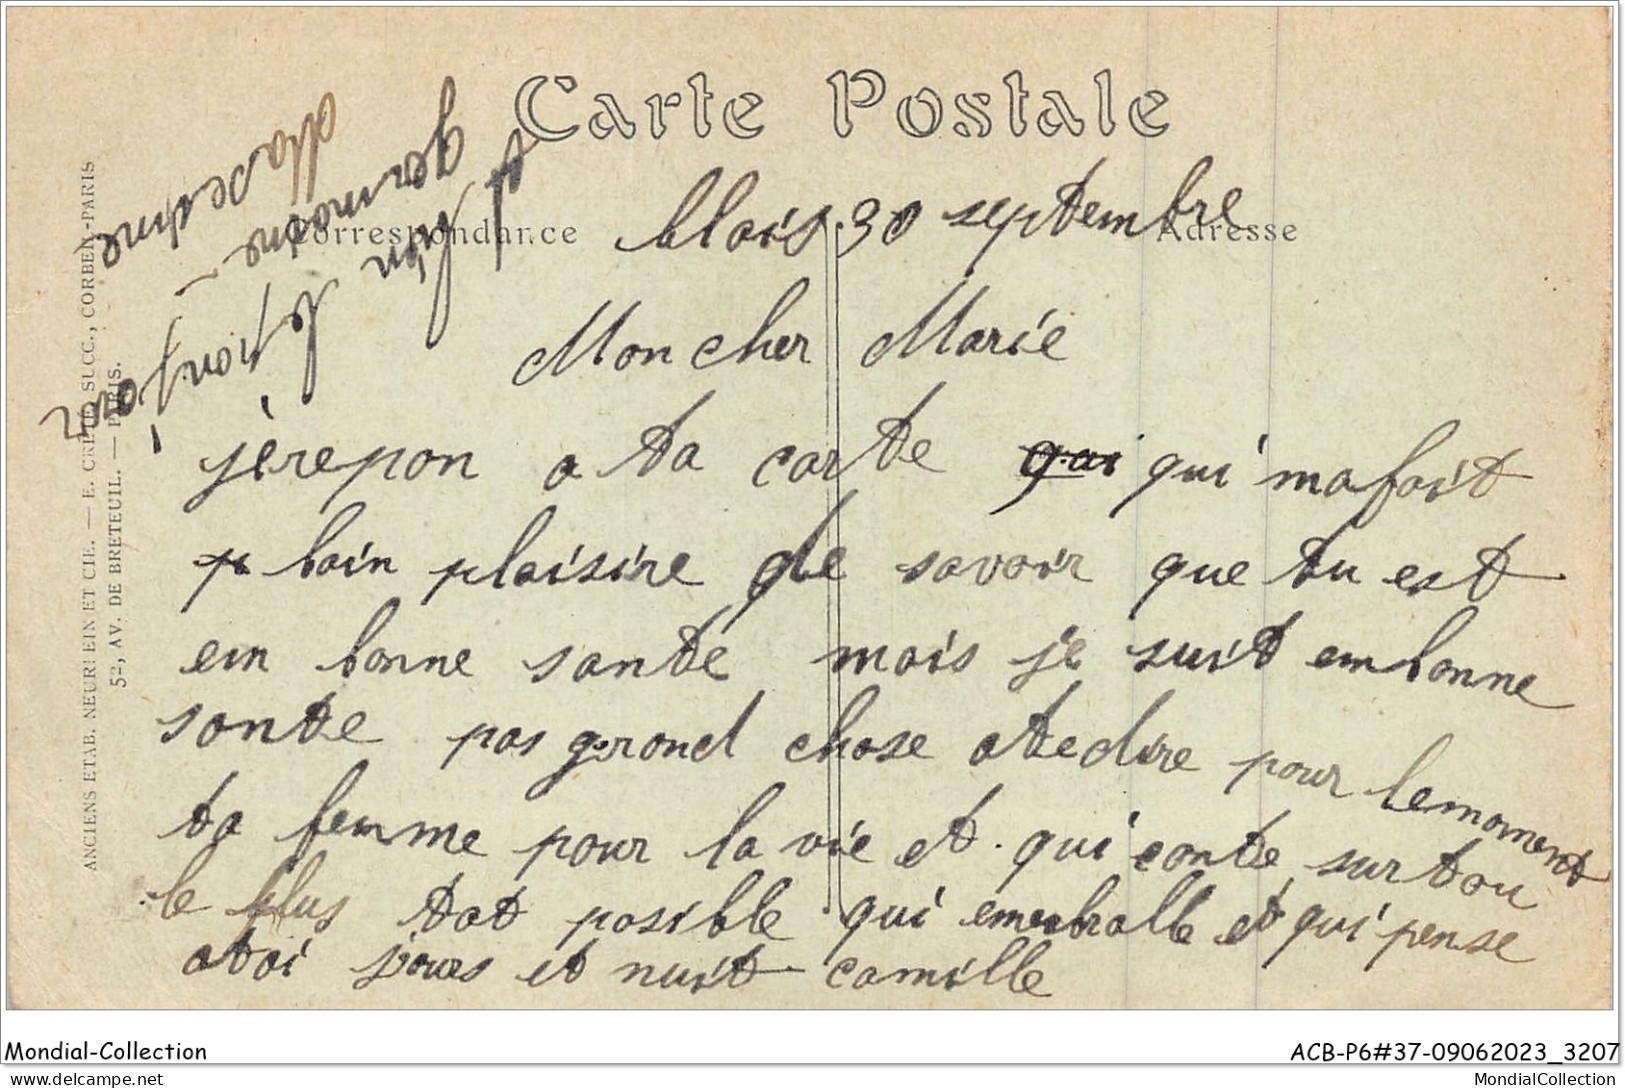 Carte Postale
Correspondance
Adresse
blois 30 septembre
Mon cher Marie
je repon a ta carte qui ma fait
p bain plaisire de savoir que tu est
em bonne sante mais je suit em bonne
sante pas grand chose a te dire pour le moment
ta femme pour la vie et qui conte sur tou
le plus tot posible qui embralle et qui pense
a toi jours et nuit camille
germaine
ANCIENS ETAB. NEURDEIN ET CIE. — E. CRÉTÉ, SUCC., CORBEIL-PARIS
52, AV. DE BRETEUIL. — PARIS.
Mondial-Collection
ACB-P6#37-09062023_3207
www.delcampe.net
MondialCollection